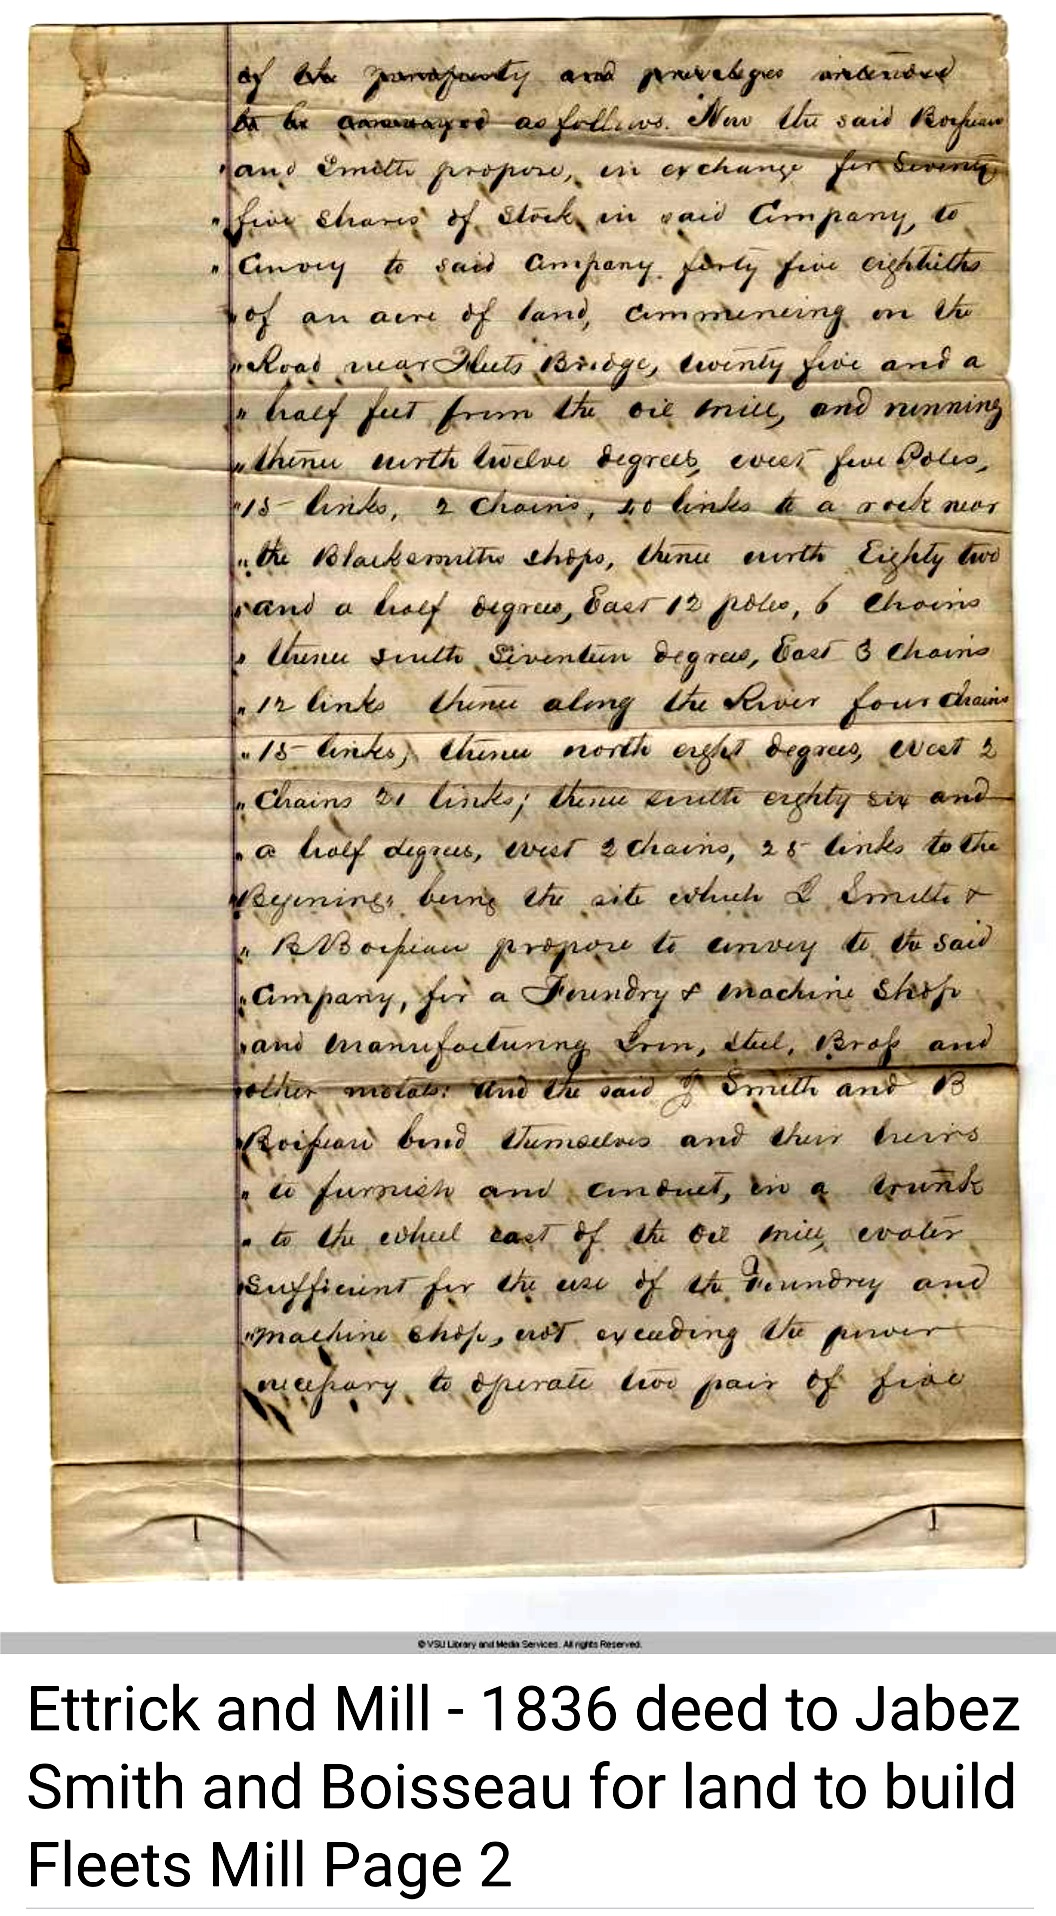 of the property and privileges intended
to be conveyed as follows. Now the said Boisseau
and Smith propose, in exchange for Seventy
" five shares of Stock in said Company, to
" Convey to said Company forty five eightieths
" of an acre of land, commencing on the
" Road near Fleets Bridge, twenty five and a
" half feet from the oil mill, and running
" thence north twelve degrees, west five Poles,
" 15 links, 2 Chains, 40 links to a rock near
" the Blacksmiths shops, thence north Eighty two
" and a half degrees, East 12 poles, 6 Chains
" thence south Seventeen degrees, East 3 Chains
" 12 links thence along the River four chains
" 15 links; thence north eight degrees, West 2
" Chains 21 links; thence south eighty six and
" a half degrees, west 2 chains, 25 links to the
" Begining, being the site which J Smith &
" B Boisseau propose to convey to the said
" Company, for a Foundry & machine Shop
" and manufacturing Iron, steel, Brass and
other metals: And the said J Smith and B
Boisseau bind themselves and their heirs
" to furnish and conduct, in a trunk
" to the wheel east of the Oil mill, water
" Sufficient for the use of the Foundrey and
" machine shop, not exceeding the power
necessary to operate two pair of five
© VSU Library and Media Services. All rights Reserved.
Ettrick and Mill - 1836 deed to Jabez
Smith and Boisseau for land to build
Fleets Mill Page 2